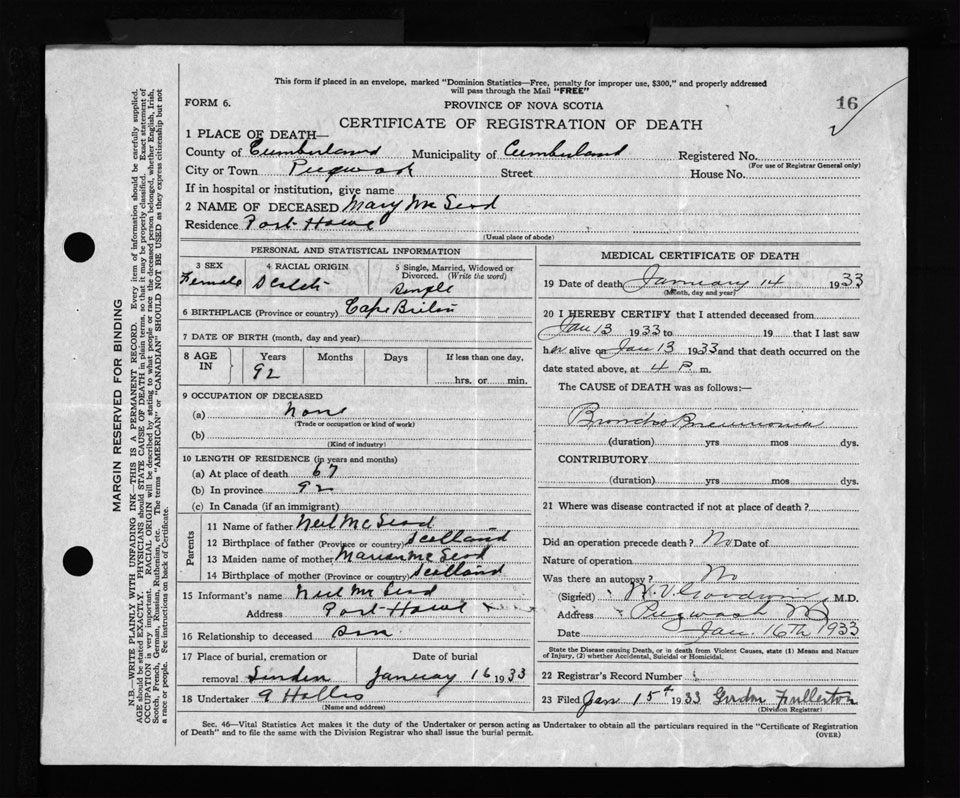 This form if placed in an envelope, marked "Dominion Statistics—Free, penalty for improper use, $300," and properly addressed
will pass through the Mail "FREE"
FORM 6.
PROVINCE OF NOVA SCOTIA
16
CERTIFICATE OF REGISTRATION OF DEATH
1 PLACE OF DEATH—
County of Cumberland Municipality of Cumberland Registered No.
(For use of Registrar General only)
City or Town Pugwash Street House No.
If in hospital or institution, give name
2 NAME OF DECEASED Mary McLeod
Residence Port Howe
(Usual place of abode)
PERSONAL AND STATISTICAL INFORMATION
3 SEX 4 RACIAL ORIGIN 5 Single, Married, Widowed or
Divorced. (Write the word)
Female Scotch Single
6 BIRTHPLACE (Province or country) Cape Breton
7 DATE OF BIRTH (month, day and year)
8 AGE IN Years Months Days If less than one day,
92 hrs. or min.
9 OCCUPATION OF DECEASED
(a) none
(Trade or occupation or kind of work)
(b)
(Kind of industry)
10 LENGTH OF RESIDENCE (in years and months)
(a) At place of death 67
(b) In province 92
(c) In Canada (if an immigrant)
Parents
11 Name of father Neil McLeod
12 Birthplace of father (Province or country) Scotland
13 Maiden name of mother Marian McLeod
14 Birthplace of mother (Province or country) Scotland
15 Informant's name Neil McLeod
Address Port Howe
16 Relationship to deceased son
17 Place of burial, cremation or Date of burial
removal Linden January 16 1933
18 Undertaker G Hollis
(Name and address)
MEDICAL CERTIFICATE OF DEATH
19 Date of death January 14 1933
(Month, day and year)
20 I HEREBY CERTIFY that I attended deceased from
Jan 13 1933 to 19 that I last saw
her alive on Jan 13 1933 and that death occurred on the
date stated above, at 4 P. m.
The CAUSE of DEATH was as follows:—
Broncho Pneumonia
(duration) yrs mos dys.
CONTRIBUTORY
(duration) yrs mos dys.
21 Where was disease contracted if not at place of death?
Did an operation precede death? No Date of
Nature of operation
Was there an autopsy? No
(Signed) M.D.
Address Pugwash NS
Date Jan. 16th 1933
State the Disease causing Death, or in death from Violent Causes, state (1) Means and Nature
of Injury, (2) whether Accidental, Suicidal or Homicidal.
22 Registrar's Record Number
23 Filed Jan 15th 1933 Gordon Fullerton
(Division Registrar)
Sec. 46—Vital Statistics Act makes it the duty of the Undertaker or person acting as Undertaker to obtain all the particulars required in the "Certificate of Registration
of Death" and to file the same with the Division Registrar who shall issue the burial permit.
(OVER)
MARGIN RESERVED FOR BINDING
N.B.—WRITE PLAINLY WITH UNFADING INK—THIS IS A PERMANENT RECORD. Every item of information should be carefully supplied.
AGE should be stated EXACTLY. PHYSICIANS should STATE CAUSE OF DEATH in plain terms, so that it may be properly classified. Exact statement of
OCCUPATION is very important. RACIAL ORIGIN will be described by stating to what people or race the deceased person belonged, whether English, Irish,
Scotch, French, German, Russian, Ruthenian, etc. The terms "AMERICAN" or "CANADIAN" SHOULD NOT BE USED as they express citizenship but not
a race or people. See instructions on back of Certificate.